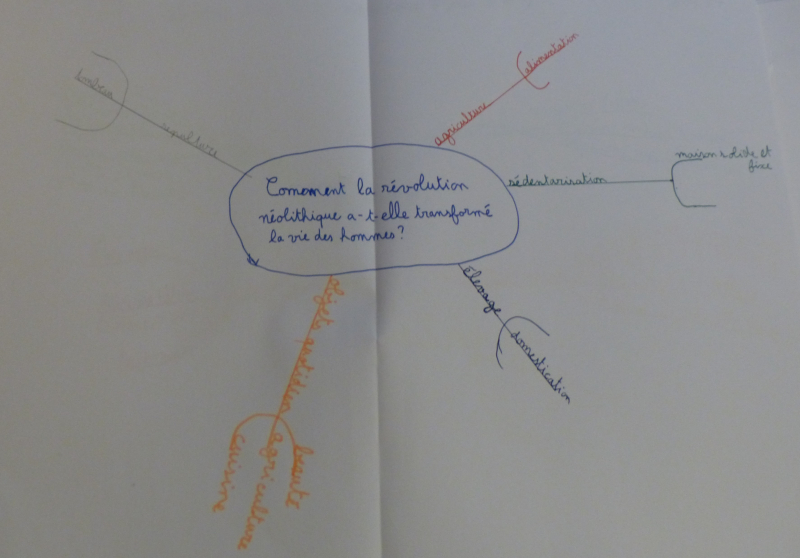 Comoment la révolution
néolithique a-t-elle transformé
la vie des hommes?
agriculture
alimentation
sédentarisation
maison solide et
fixe
élevage
domestication
objets quotidien
beauté
agriculture
cuisine
sépulture
tombeau